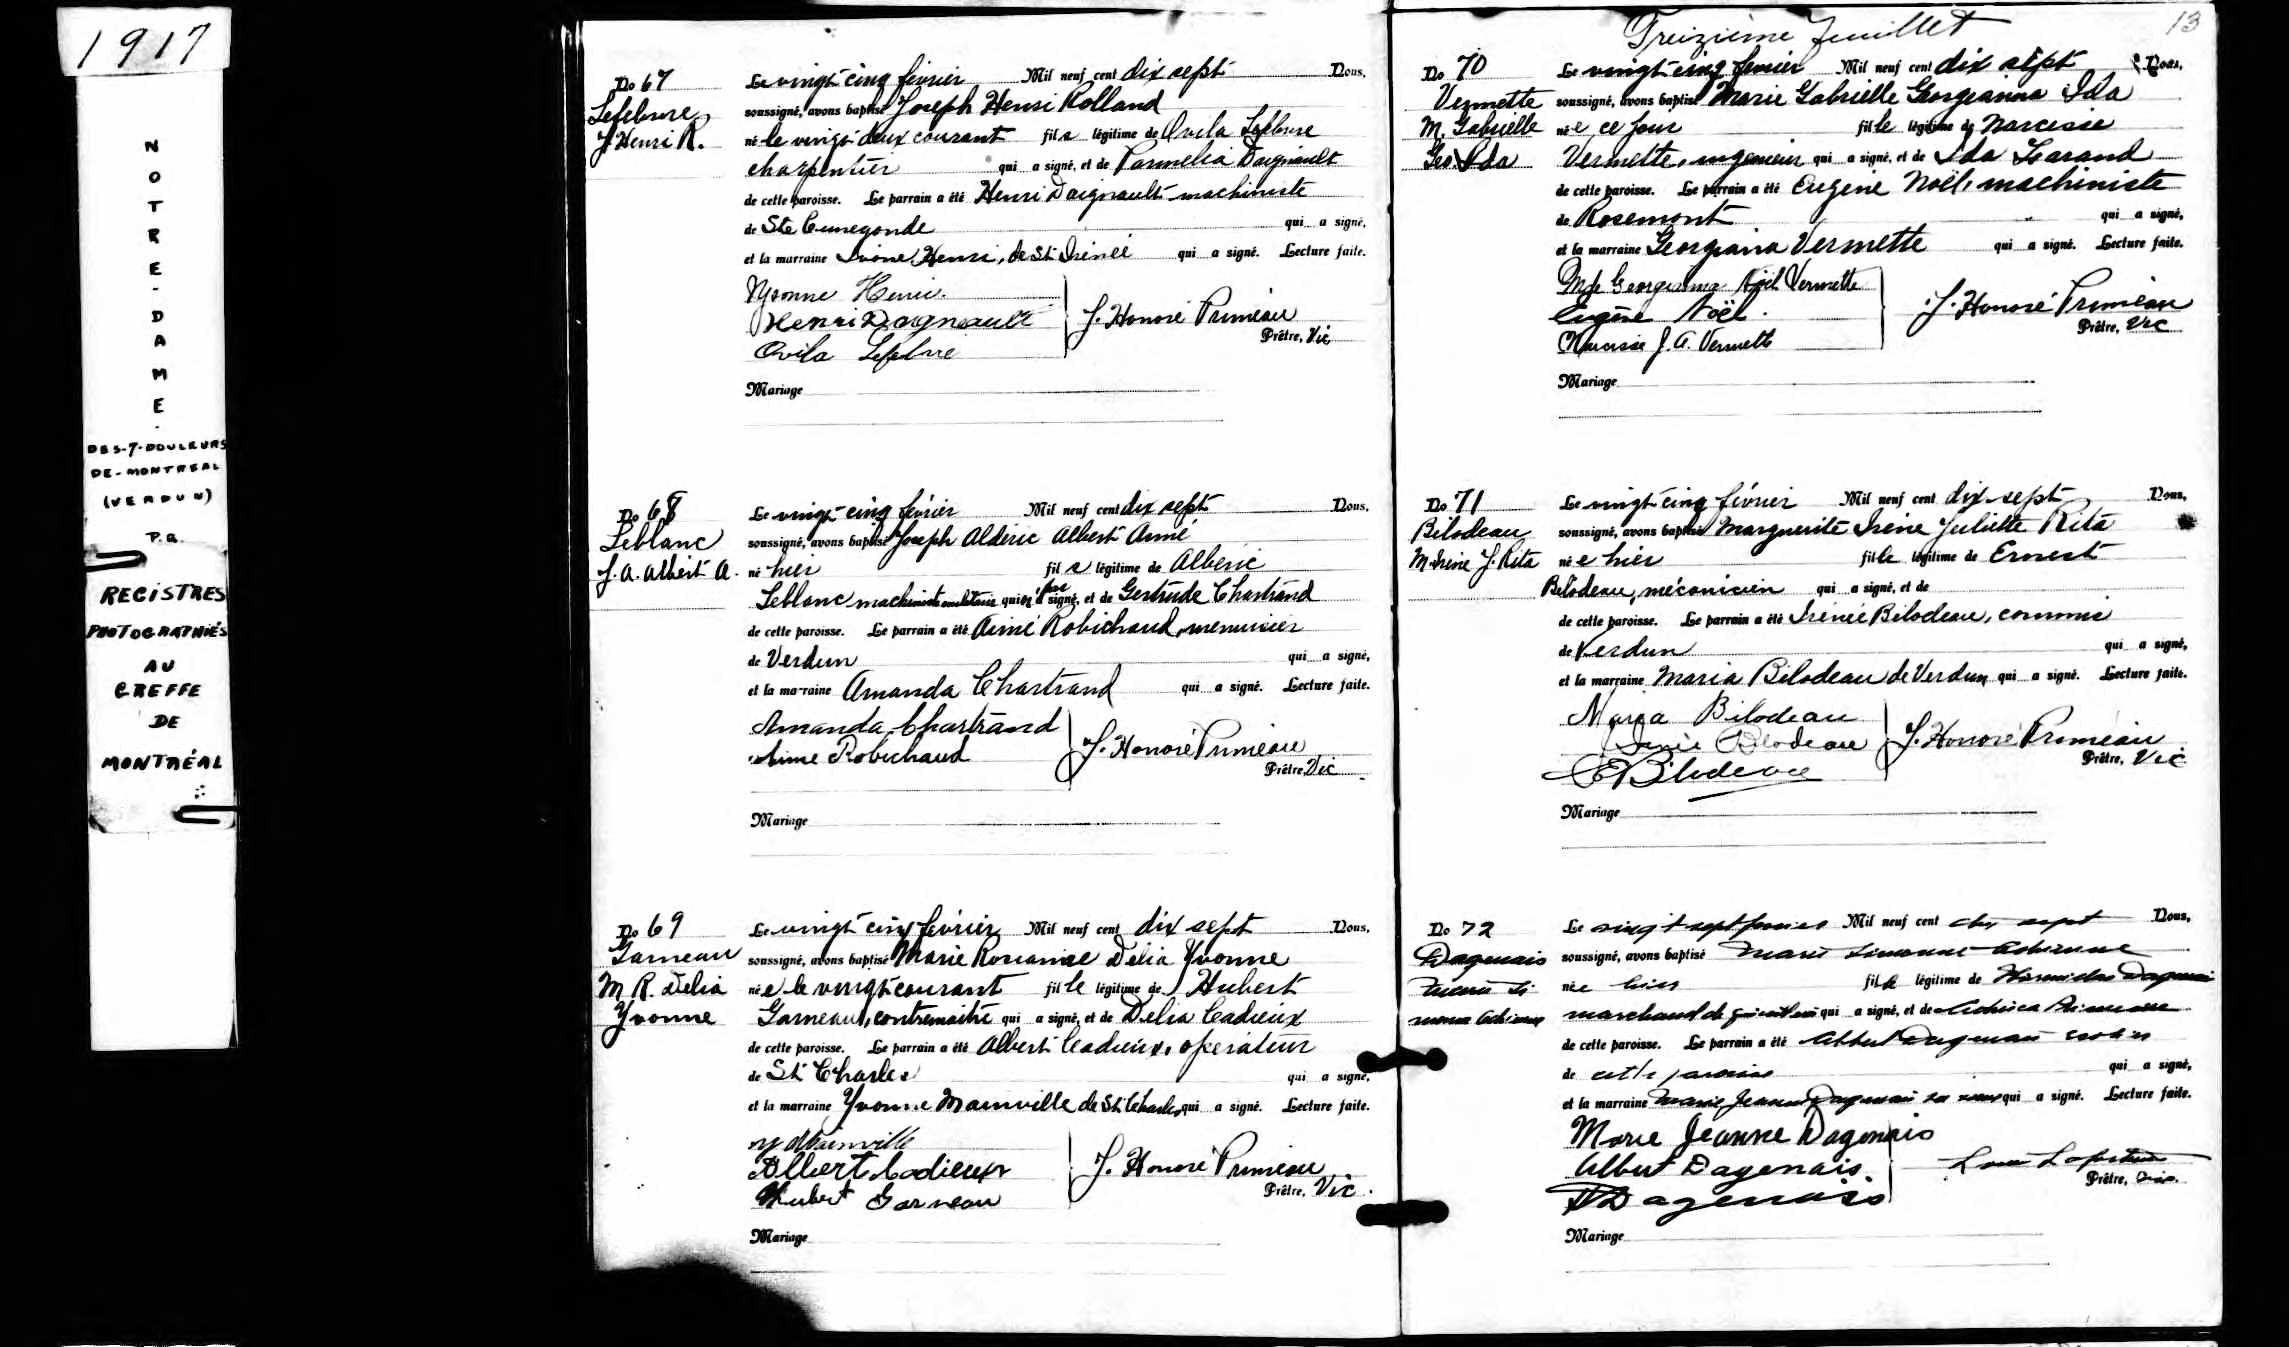 1917
NOTRE-DAME-
DES-7-DOULEURS
DE-MONTREAL
(VERDUN)
P.Q.
REGISTRES
PHOTOGRAPHIÉS
AU
GREFFE
DE
MONTRÉAL
No 67
Lefebvre
J. Henri R.
Le vingt cinq février Mil neuf cent dix sept Nous,
soussigné, avons baptisé Joseph Henri Rolland
né le vingt deux courant fils légitime de Ovila Lefebvre
charpentier qui a signé, et de Parmelia Daignault
de cette paroisse. Le parrain a été Henri Daignault machiniste
de Ste Cunegonde qui a signé,
et la marraine Henri, de St Irénée qui a signé. Lecture faite.
Yvonne Henri
Henri Daigneault
Ovila Lefebvre
J. Honoré Primeau
Prêtre, Vic
Mariage
No 68
Leblanc
J. A. Albert A.
Le vingt cinq février Mil neuf cent dix sept Nous,
soussigné, avons baptisé Joseph Aldéric Albert Aimé
né hier fils légitime de Alberic
Leblanc qui signé, et de Gertrude Chartrand
de cette paroisse. Le parrain a été Aimé Robichaud, menuisier
de Verdun qui a signé,
et la marraine Amanda Chartrand qui a signé. Lecture faite.
Amanda Chartrand
Aime Robichaud
J. Honoré Primeau
Prêtre, Vic
Mariage
No 69
Garneau
M R. Delia
Yvonne
Le vingt cinq février Mil neuf cent dix sept Nous,
soussigné, avons baptisé Marie Delia Yvonne
née le vingt courant fille légitime de Hubert
Garneau, contremaître qui a signé, et de Delia Cadieux
de cette paroisse. Le parrain a été Albert Cadieux, opérateur
de St Charles qui a signé,
et la marraine Yvonne Mainville de St Charles, qui a signé. Lecture faite.
Y Mainville
Albert Cadieux
Hubert Garneau
J. Honoré Primeau
Prêtre, Vic.
Mariage
Treizième feuillet
13
No 70
Vermette
M. Gabrielle
Geo. Ida
Le vingt cinq février Mil neuf cent dix sept Nous,
soussigné, avons baptisé Marie Gabrielle Georgianna Ida
née ce jour fille légitime de Narcisse
Vermette, ingénieur qui a signé, et de Ida Larand
de cette paroisse. Le parrain a été Eugène Noël, machiniste
de Rosemont qui a signé,
et la marraine Georgiana Vermette qui a signé. Lecture faite.
Mde Georgianna Noël Vermette
Eugène Noël.
Narcisse J. A. Vermette
J. Honoré Primeau
Prêtre, Vic
Mariage
No 71
Bilodeau
M. Irène J. Rita
Le vingt cinq février Mil neuf cent dix-sept Nous,
soussigné, avons baptisé Marguerite Irène Juliette Rita
née hier fille légitime de Ernest
Bilodeau, mécanicien qui a signé, et de
de cette paroisse. Le parrain a été Irénée Bilodeau, commis
de Verdun qui a signé,
et la marraine Maria Bilodeau de Verdun qui a signé. Lecture faite.
Maria Bilodeau
Irenée Bilodeau
E Bilodeau
J. Honoré Primeau
Prêtre, Vic
Mariage
No 72
Dagenais
Le vingt sept février Mil neuf cent dix sept Nous,
soussigné, avons baptisé Marie Simonne
née hier fille légitime de Dagenais
marchand de qui a signé, et de
de cette paroisse. Le parrain a été Albert Dagenais
de cette paroisse qui a signé,
et la marraine Marie Jeanne Dagenais qui a signé. Lecture faite.
Marie Jeanne Dagenais
Albert Dagenais
Dagenais
Prêtre,
Mariage